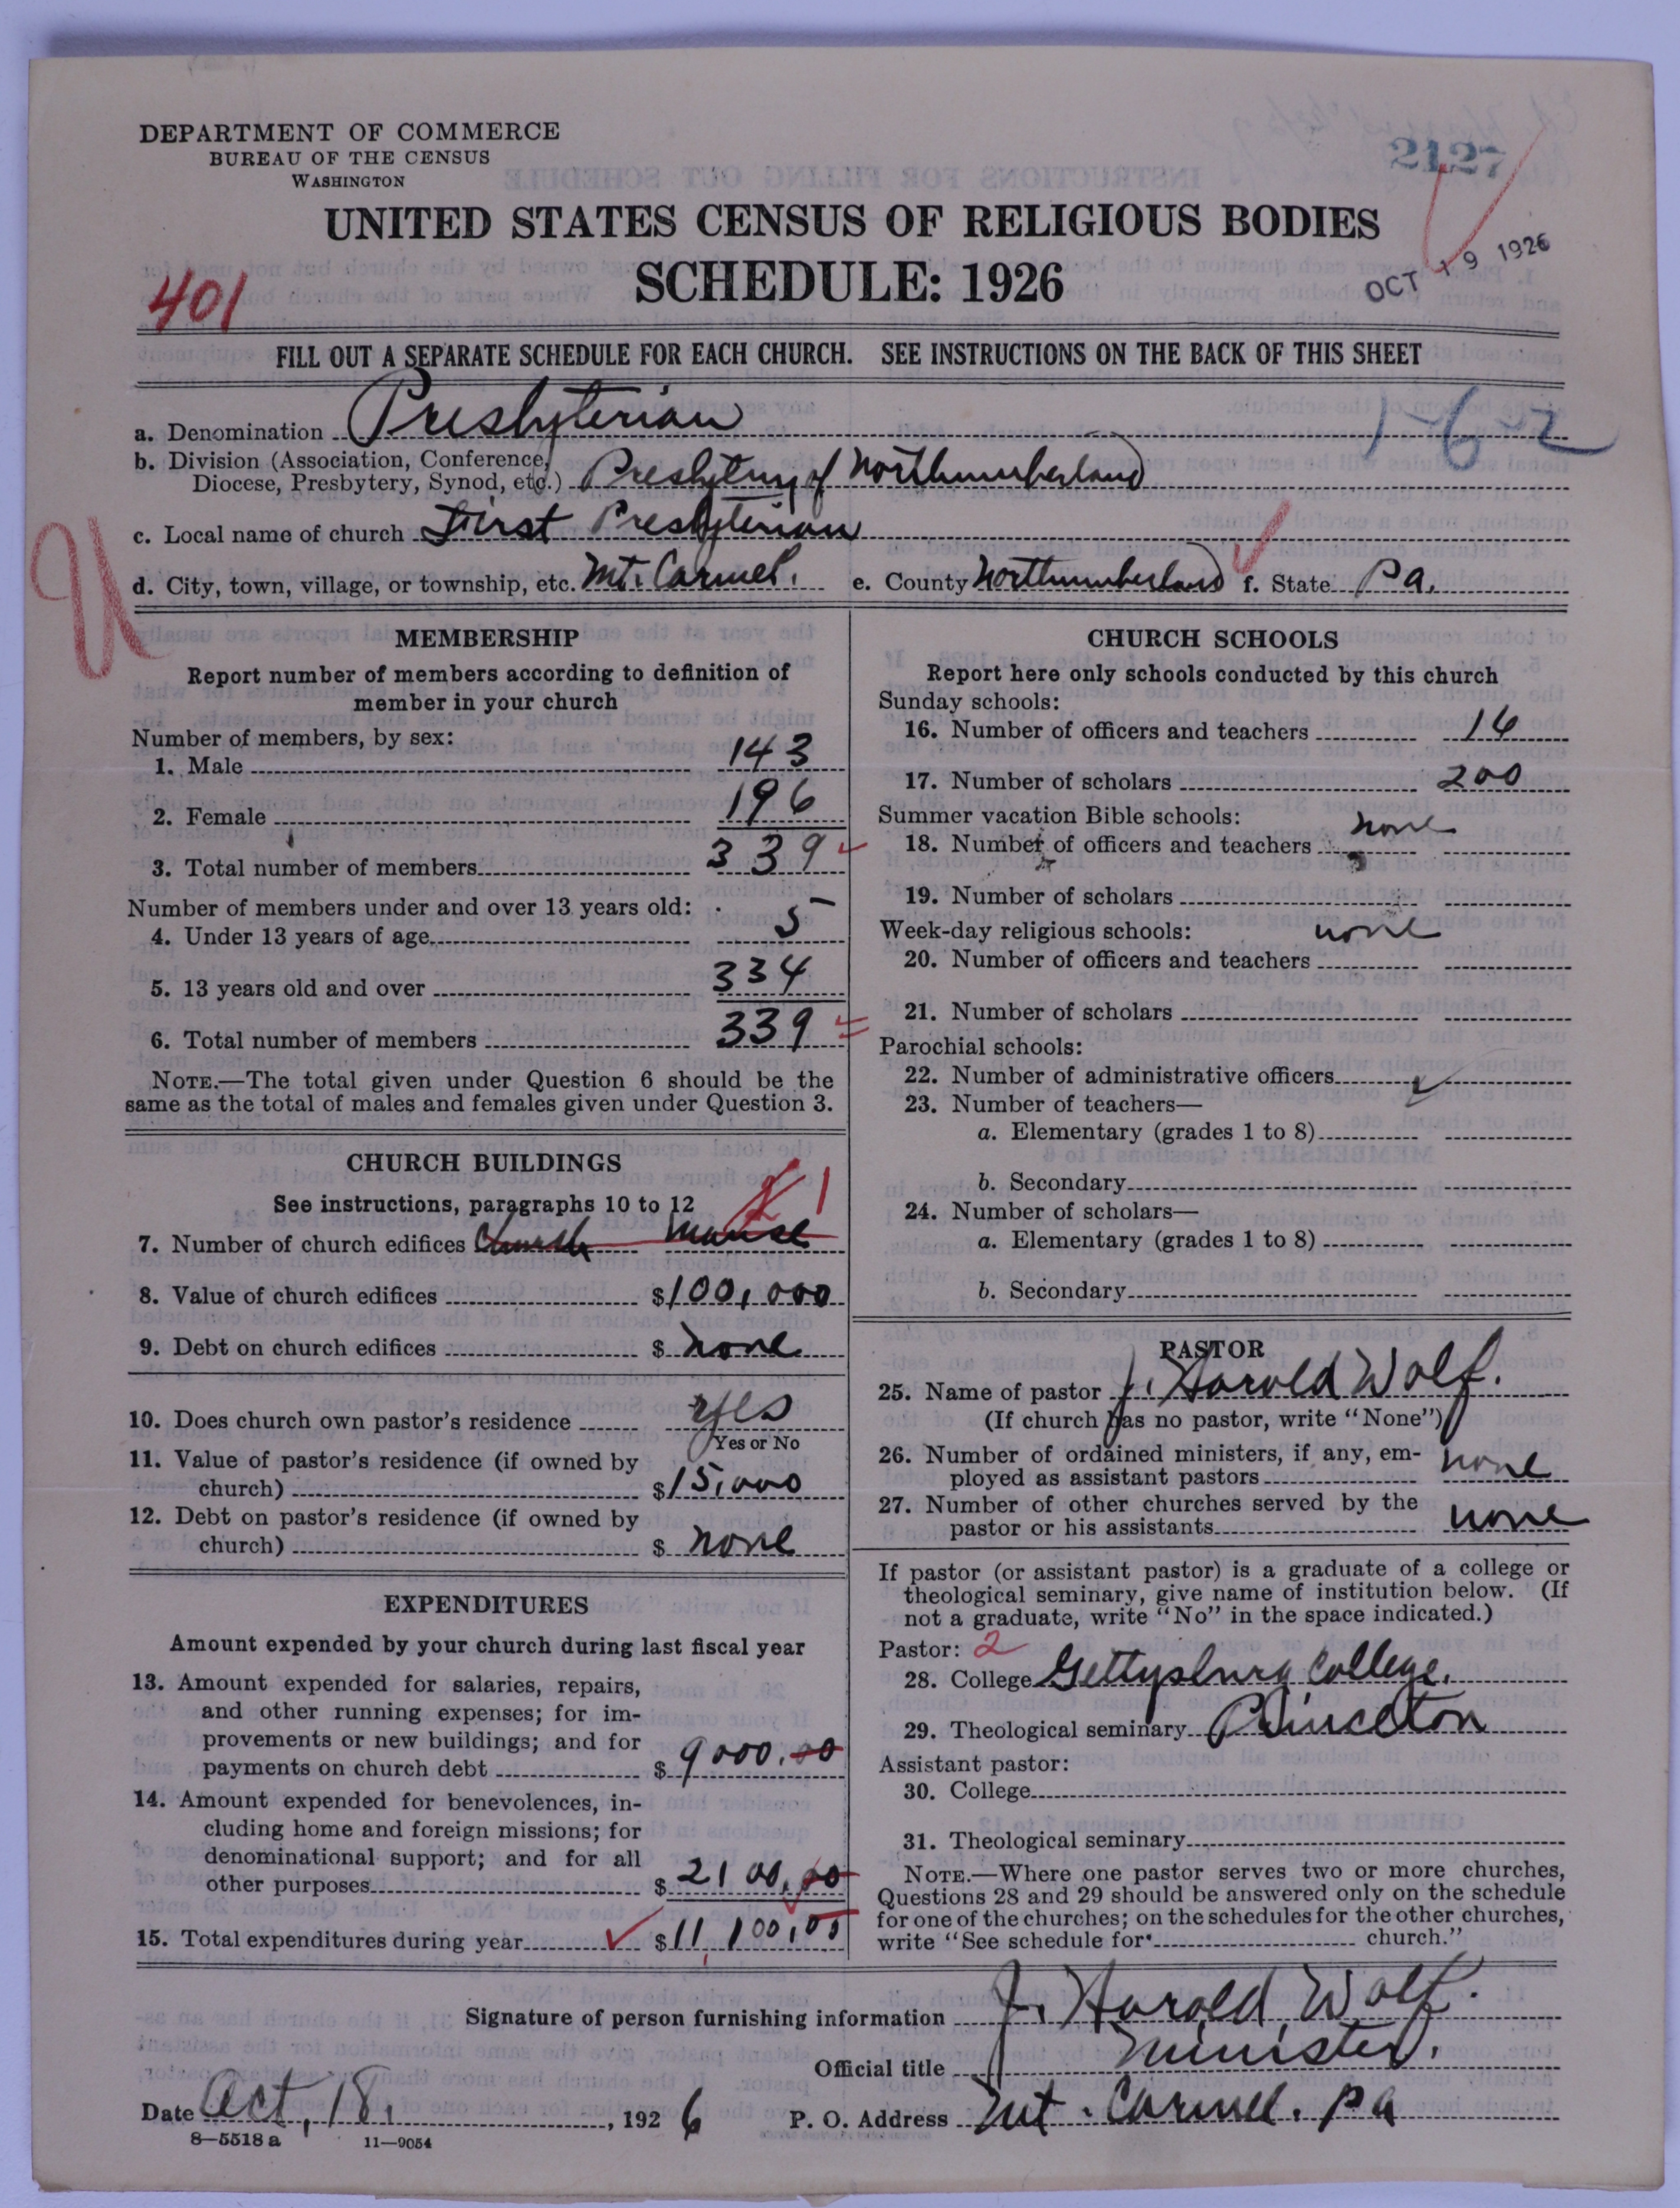 DEPARTMENT OF COMMERCE
BUREAU OF THE CENSUS
WASHINGTON
2127
UNITED STATES CENSUS OF RELIGIOUS BODIES
SCHEDULE: 1926
OCT 19 1926
401
FILL OUT A SEPARATE SCHEDULE FOR EACH CHURCH. SEE INSTRUCTIONS ON THE BACK OF THIS SHEET
a. Denomination Presbyterian 1-6-2
b. Division (Association, Conference,
Diocese, Presbytery, Synod, etc.) Presbytery of Northumberland
c. Local name of church First Presbyterian
d. City, town, village, or township, etc. Mt. Carmel. e. County Northumberland f. State Pa.
U
MEMBERSHIP
Report number of members according to definition of
member in your church
Number of members, by sex:
1. Male 143
2. Female 196
3. Total number of members 339
Number of members under and over 13 years old:
4. Under 13 years of age 5
5. 13 years old and over 334
6. Total number of members 339
NOTE.—The total given under Question 6 should be the
same as the total of males and females given under Question 3.
CHURCH BUILDINGS
See instructions, paragraphs 10 to 12
7. Number of church edifices Church Manse 1
8. Value of church edifices $100,000
9. Debt on church edifices $ none
10. Does church own pastor's residence yes
Yes or No
11. Value of pastor's residence (if owned by
church) $15,000
12. Debt on pastor's residence (if owned by
church) $ none
EXPENDITURES
Amount expended by your church during last fiscal year
13. Amount expended for salaries, repairs,
and other running expenses; for im-
provements or new buildings; and for
payments on church debt $ 9000.00
14. Amount expended for benevolences, in-
cluding home and foreign missions; for
denominational support; and for all
other purposes $ 2100.00
15. Total expenditures during year $11,100.00
CHURCH SCHOOLS
Report here only schools conducted by this church
Sunday schools:
16. Number of officers and teachers 16
17. Number of scholars 200
Summer vacation Bible schools: none
18. Number of officers and teachers
19. Number of scholars
Week-day religious schools: none
20. Number of officers and teachers
21. Number of scholars
Parochial schools:
22. Number of administrative officers
23. Number of teachers—
a. Elementary (grades 1 to 8)
b. Secondary
24. Number of scholars—
a. Elementary (grades 1 to 8)
b. Secondary
PASTOR
25. Name of pastor J. Harold Wolf.
(If church has no pastor, write "None")
26. Number of ordained ministers, if any, em-
ployed as assistant pastors none
27. Number of other churches served by the
pastor or his assistants none
If pastor (or assistant pastor) is a graduate of a college or
theological seminary, give name of institution below. (If
not a graduate, write "No" in the space indicated.)
Pastor: 2
28. College Gettysburg College.
29. Theological seminary Princeton
Assistant pastor:
30. College
31. Theological seminary
NOTE.—Where one pastor serves two or more churches,
Questions 28 and 29 should be answered only on the schedule
for one of the churches; on the schedules for the other churches,
write "See schedule for church."
Signature of person furnishing information J. Harold Wolf.
Official title Minister.
Date Oct, 18, , 1926 P. O. Address Mt. Carmel. Pa
8—5518 a 11—9054